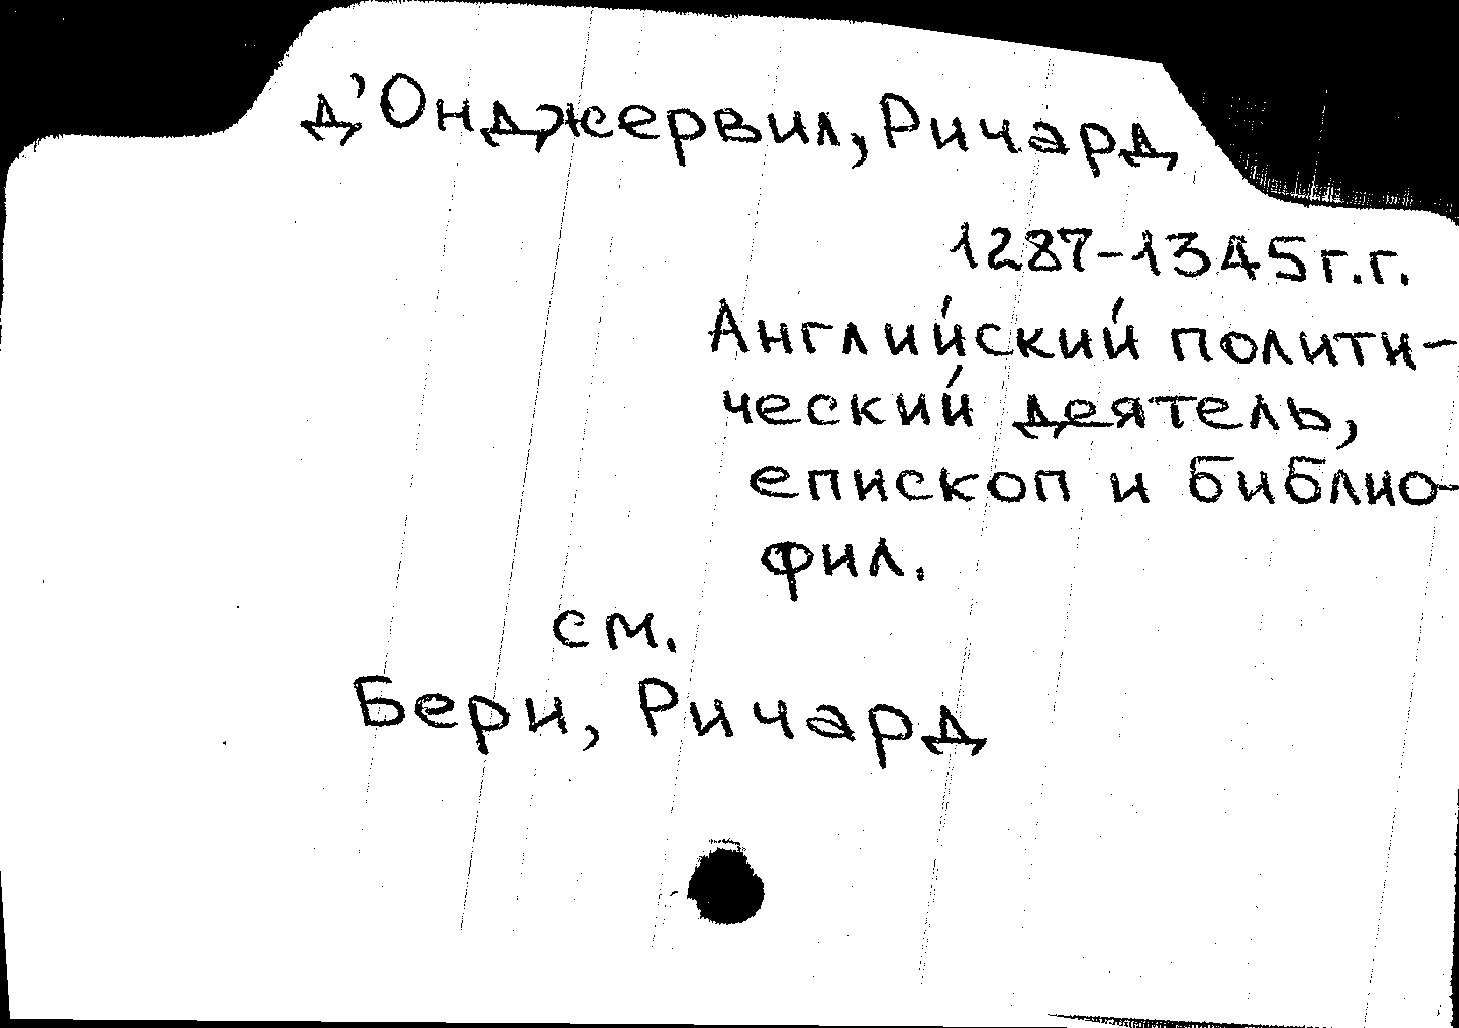 д'Онджервил, Ричард
1287-1345 г.г.
Английский полити-
ческий деятель,
епископ и библио-
фил.
см.
Бери, Ричард